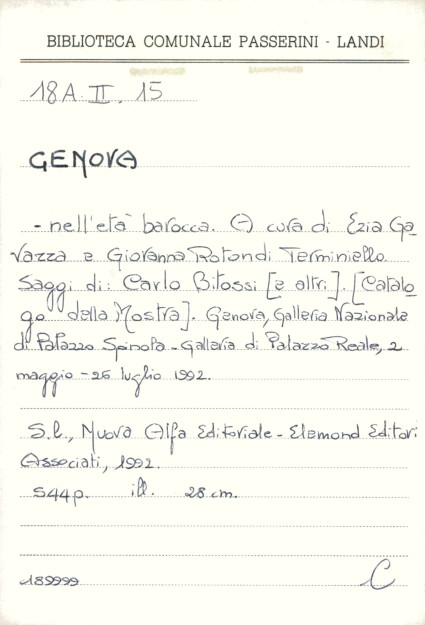 BIBLIOTECA COMUNALE PASSERINI - LANDI
18A. II. 15
GENOVA
- nell'età barocca. A cura di Ezia Ga
vazza e Giovanna Rotondi Terminiello.
Saggi di: Carlo Bitossi [e altri]. [Catalo
go della Mostra]. Genova, Galleria Nazionale
di Palazzo Spinola - Galleria di Palazzo Reale, 2
maggio - 26 luglio 1992.
S.l., Nuova Alfa Editoriale - Elemond Editori
Associati, 1992.
544 p. ill. 28 cm.
189999 C